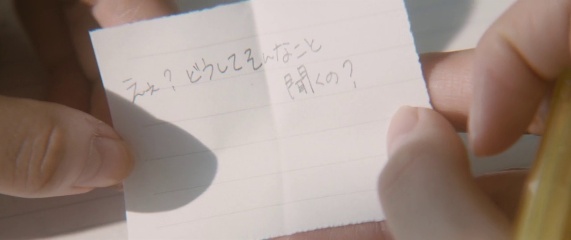 えぇ？どうしてそんなこと
聞くの？